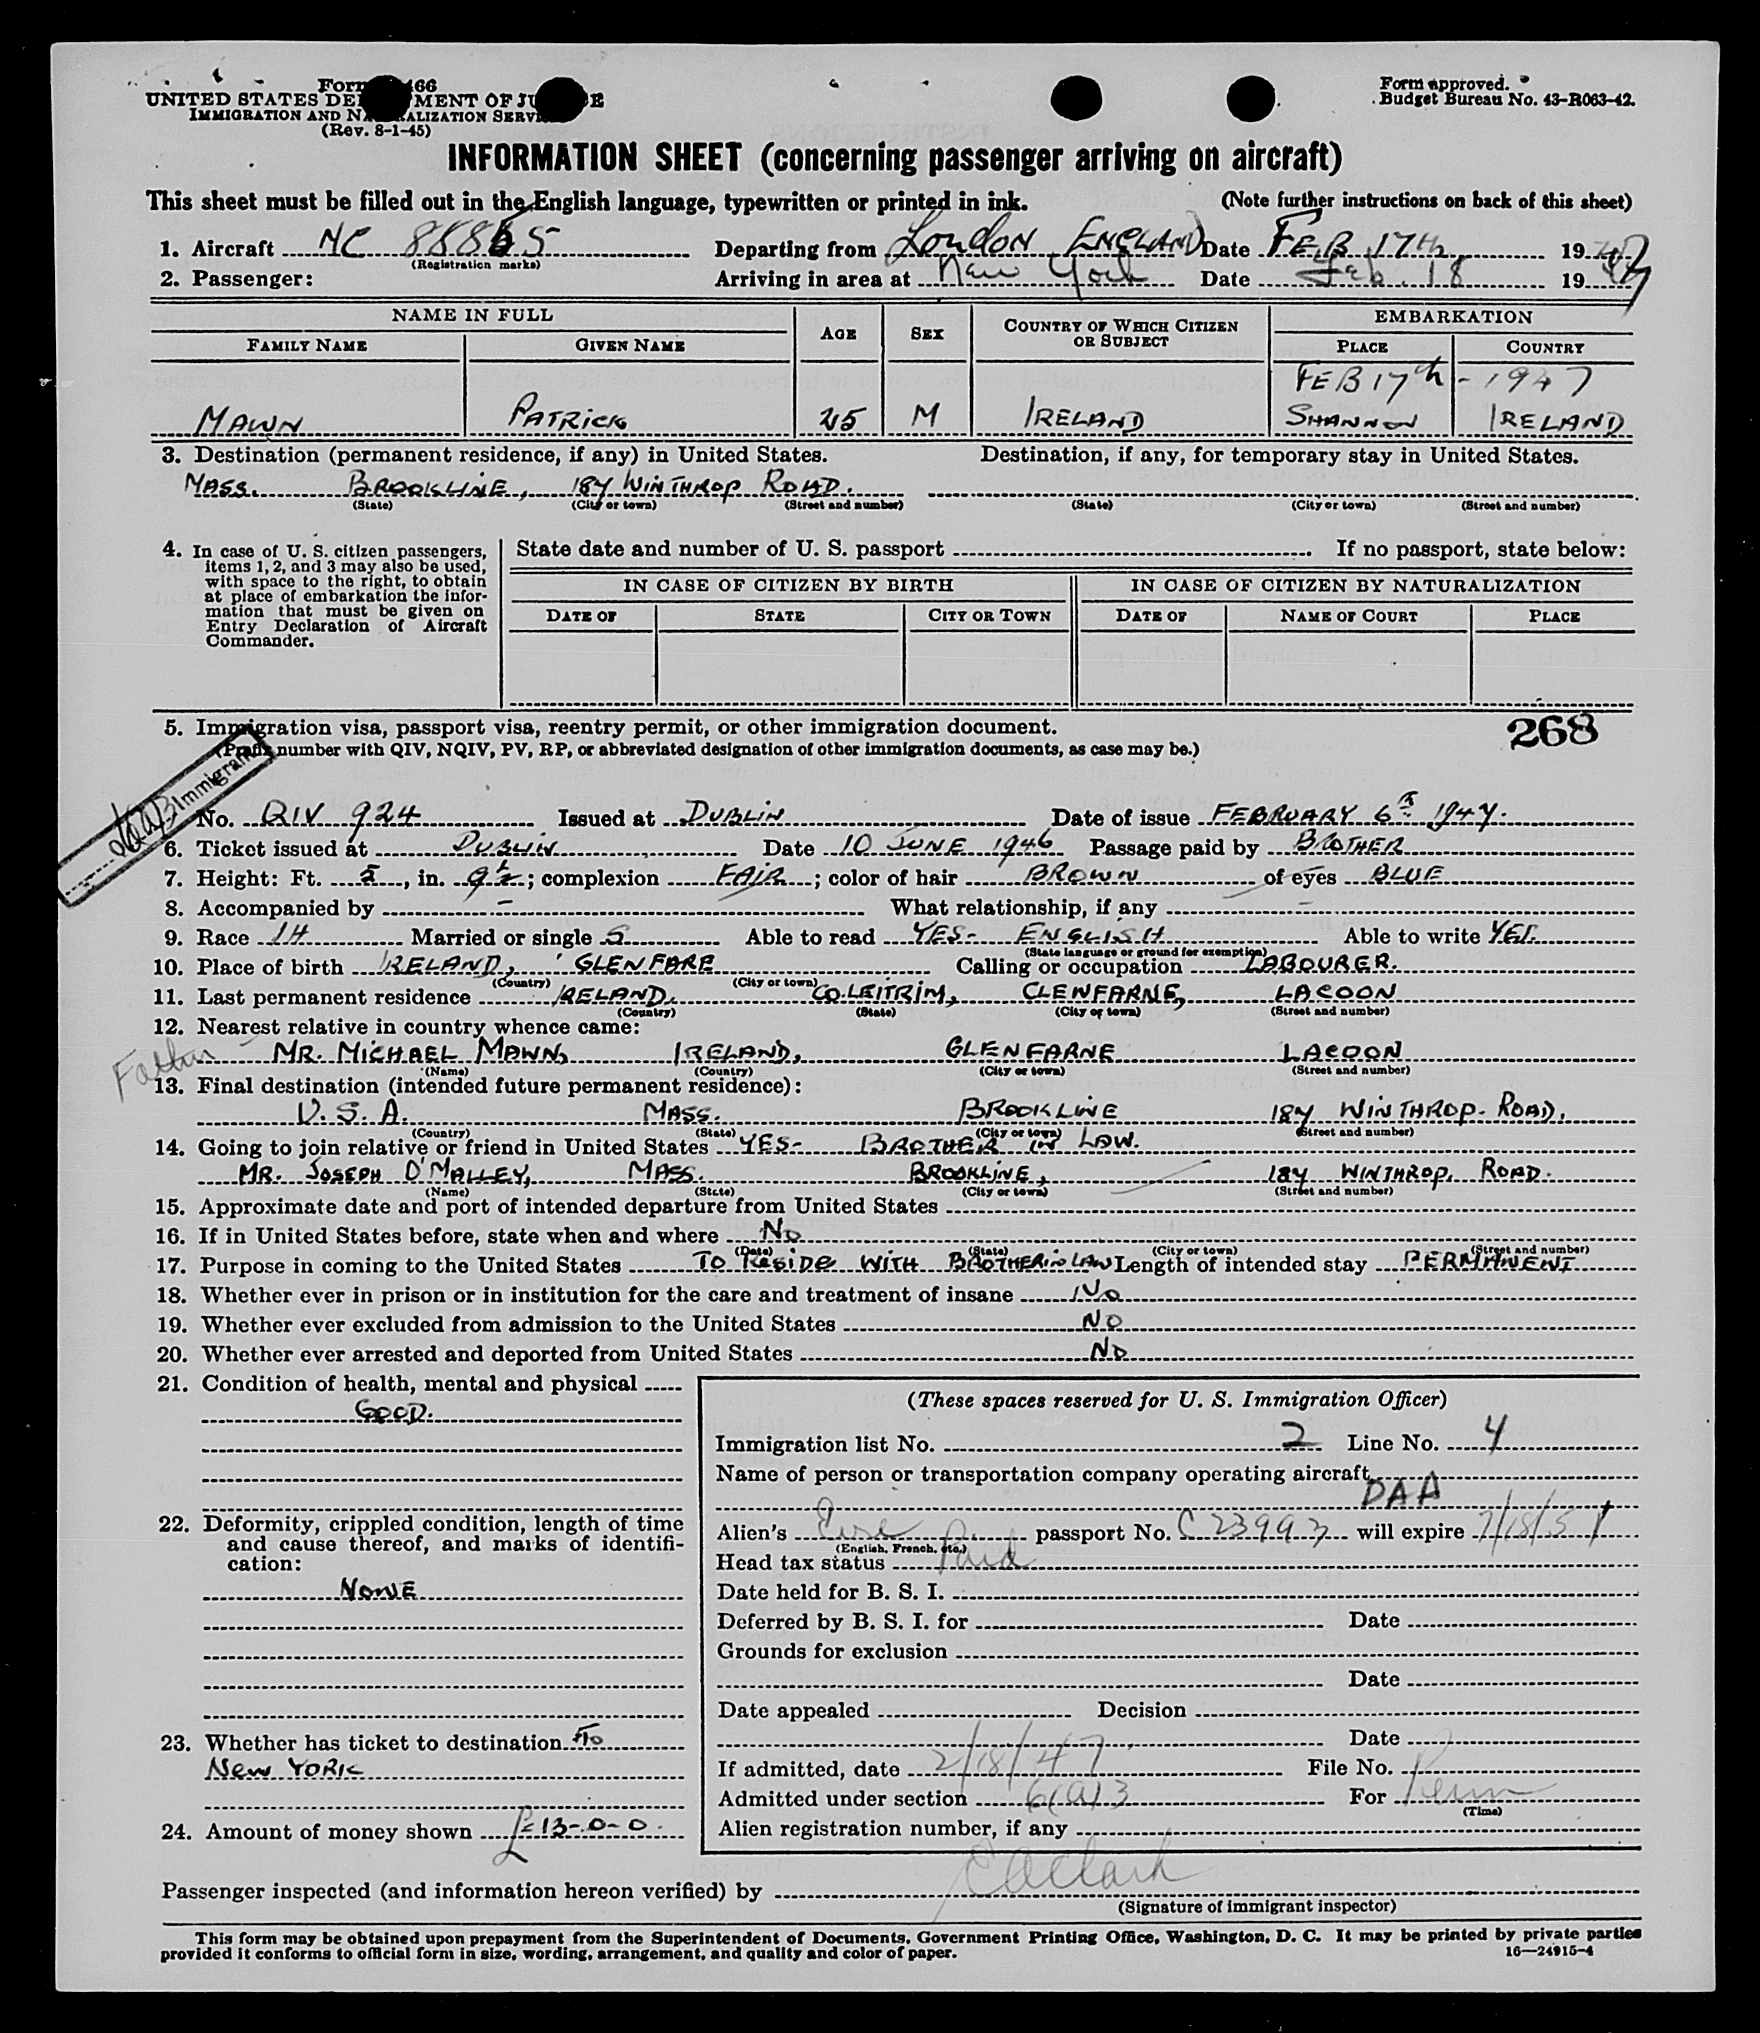 Form 466
UNITED STATES DEPARTMENT OF JUSTICE
IMMIGRATION AND NATURALIZATION SERVICE
(Rev. 8-1-45)
Form approved.
Budget Bureau No. 43-R063-42.
INFORMATION SHEET (concerning passenger arriving on aircraft)
This sheet must be filled out in the English language, typewritten or printed in ink. (Note further instructions on back of this sheet)
1. Aircraft NC 88865 Departing from LONDON ENGLAND Date FEB 17th 1947
(Registration marks)
2. Passenger: Arriving in area at New York Date Feb. 18 1947
NAME IN FULL AGE SEX COUNTRY OF WHICH CITIZEN OR SUBJECT EMBARKATION
FAMILY NAME GIVEN NAME PLACE COUNTRY
FEB 17th - 1947
MAWN PATRICK 25 M IRELAND SHANNON IRELAND
3. Destination (permanent residence, if any) in United States. Destination, if any, for temporary stay in United States.
MASS. BROOKLINE, 184 WINTHROP ROAD.
(State) (City or town) (Street and number) (State) (City or town) (Street and number)
4. In case of U. S. citizen passengers, items 1, 2, and 3 may also be used, with space to the right, to obtain at place of embarkation the information that must be given on Entry Declaration of Aircraft Commander.
State date and number of U. S. passport If no passport, state below:
IN CASE OF CITIZEN BY BIRTH IN CASE OF CITIZEN BY NATURALIZATION
DATE OF STATE CITY OR TOWN DATE OF NAME OF COURT PLACE
5. Immigration visa, passport visa, reentry permit, or other immigration document. 268
(Prefix number with QIV, NQIV, PV, RP, or abbreviated designation of other immigration documents, as case may be.)
Immigrant
No. QIV 924 Issued at DUBLIN Date of issue FEBRUARY 6th 1947.
6. Ticket issued at DUBLIN Date 10 JUNE 1946 Passage paid by BROTHER
7. Height: Ft. 5, in. 9½; complexion FAIR; color of hair BROWN of eyes BLUE
8. Accompanied by - What relationship, if any -
9. Race IH Married or single S Able to read YES- ENGLISH Able to write YES.
(State language or ground for exemption)
10. Place of birth IRELAND, GLENFARE Calling or occupation LABOURER.
(Country) (City or town)
11. Last permanent residence IRELAND, CO. LEITRIM, GLENFARNE, LACOON
(Country) (State) (City or town) (Street and number)
12. Nearest relative in country whence came:
Father - MR. MICHAEL MAWN, IRELAND, GLENFARNE LACOON
(Name) (Country) (City or town) (Street and number)
13. Final destination (intended future permanent residence):
U. S. A. MASS. BROOKLINE 184 WINTHROP. ROAD.
(Country) (State) (City or town) (Street and number)
14. Going to join relative or friend in United States YES- BROTHER IN LAW.
MR. JOSEPH O'MALLEY, MASS. BROOKLINE, 184 WINTHROP. ROAD.
(Name) (State) (City or town) (Street and number)
15. Approximate date and port of intended departure from United States
16. If in United States before, state when and where NO
(Date) (State) (City or town) (Street and number)
17. Purpose in coming to the United States TO RESIDE WITH BROTHER IN LAW Length of intended stay PERMANENT
18. Whether ever in prison or in institution for the care and treatment of insane NO
19. Whether ever excluded from admission to the United States NO
20. Whether ever arrested and deported from United States NO
21. Condition of health, mental and physical
GOOD.
22. Deformity, crippled condition, length of time
and cause thereof, and marks of identifi-
cation:
NONE
23. Whether has ticket to destination TO
NEW YORK
24. Amount of money shown £13-0-0.
(These spaces reserved for U. S. Immigration Officer)
Immigration list No. 2 Line No. 4
Name of person or transportation company operating aircraft
Alien's Eire P. passport No. C 23993 will expire 7/18/51
(English, French, etc.)
Head tax status Paid
Date held for B. S. I.
Deferred by B. S. I. for Date
Grounds for exclusion
Date
Date appealed Decision
Date
If admitted, date 2/18/47 File No.
Admitted under section 6(a)3 For Perm
(Time)
Alien registration number, if any
Passenger inspected (and information hereon verified) by C A Clark
(Signature of immigrant inspector)
This form may be obtained upon prepayment from the Superintendent of Documents, Government Printing Office, Washington, D. C. It may be printed by private parties
provided it conforms to official form in size, wording, arrangement, and quality and color of paper. 16—24915-4